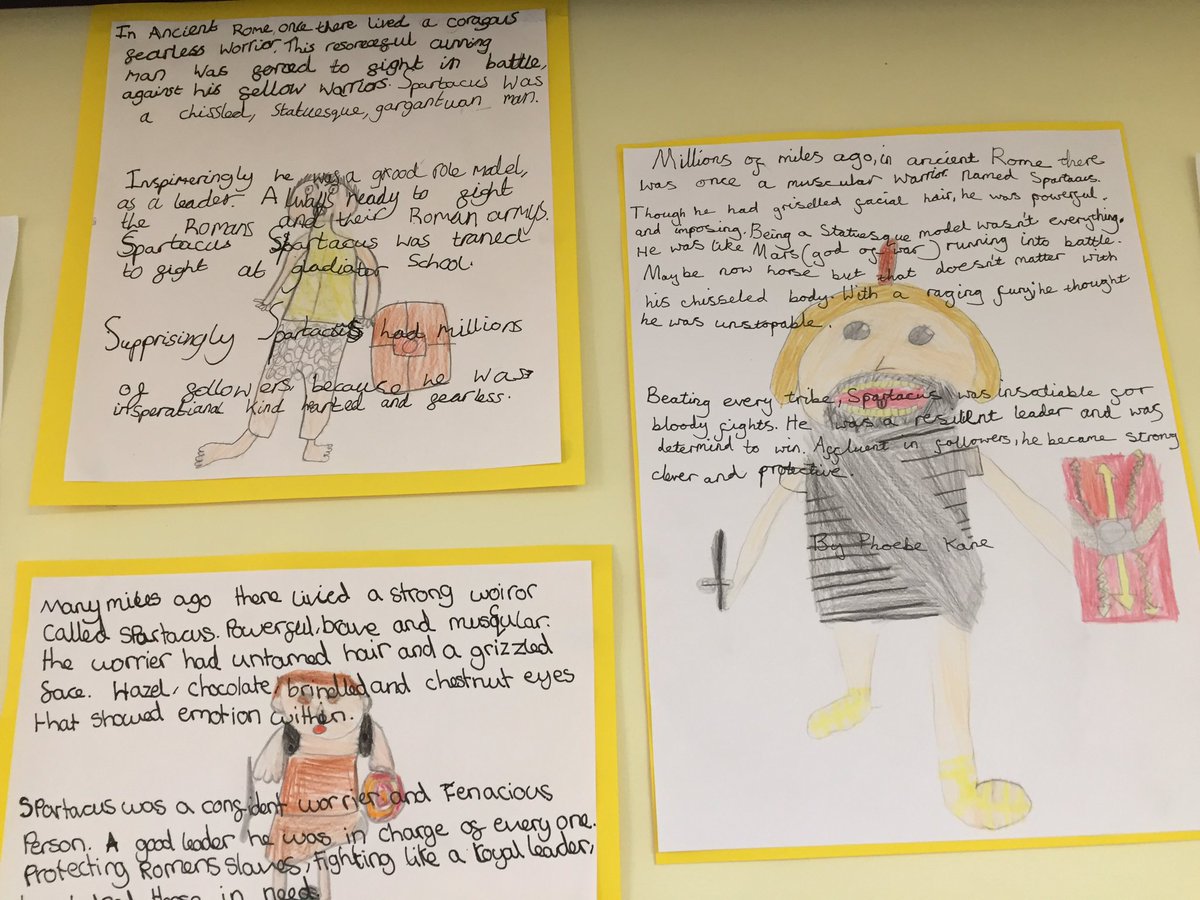 In Ancient Rome, once there lived a coragous
fearless worrior. This resoreceful cunning
man was forced to fight in battle,
against his fellow warriors. Spartacus was
a chissled, statuesque, gargantuan man.
Inspireringly he was a grood role model,
as a leader. Always ready to fight
the Romans and their Roman armys.
Spartacus Spartacus was traned
to fight at gladiator School.
Supprisingly Spartacus had millions
of follower because he was
insperational kind harted and fearless.
Many miles ago there livied a strong woiror
called Spartacus. Powerful, brave and musqular.
the worrier had untamed hair and a grizzled
face. Hazel, chocolate, brindled and chestnut eyes
that showed emotion within.
Spartacus was a confident worrier and Fenacious
Person. A good leader he was in charge of every one.
Protecting Romens slaves, fighting like a loyal leader,
those in need.
Millions of miles ago, in ancient Rome there
was once a muscular warrior named Spartacus.
Though he had griselled facial hair, he was powerful.
and imposing. Being a Statuesque model wasn't everything.
He was like Mars (god of war) running into battle.
Maybe now horse but that doesn't matter with
his chisseled body. With a raging fury, he thought
he was unstopable.
Beating every tribe, Spartacus was insatiable for
bloody fights. He was a resilient leader and was
determind to win. Affluent in followers, he became strong
clever and protective.
By Phoebe Kane